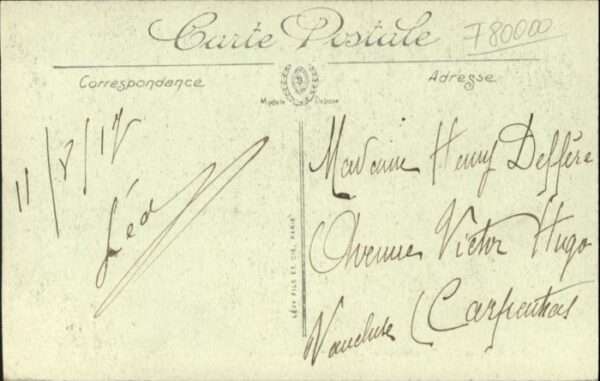 Carte Postale
780000
Correspondance
Adresse
Modèle Déposé
11/8/17
Léo
LÉVY FILS ET CIE, PARIS
Madame Henry Deffère
Avenue Victor Hugo
Carpentras
Vaucluse